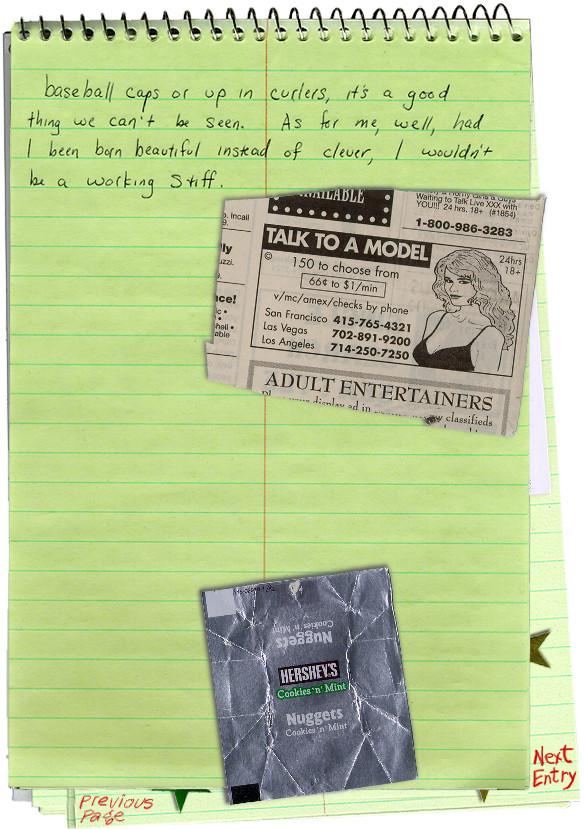 baseball caps or up in curlers, it's a good
thing we can't be seen. As for me, well, had
I been born beautiful instead of clever, I wouldn't
be a working stiff.
AVAILABLE
Horny Girls & Guys
Waiting to Talk Live XXX with
YOU!!! 24 hrs. 18+ (#1854)
1-800-986-3283
. Incall
TALK TO A MODEL
©
150 to choose from
66¢ to $1/min
v/mc/amex/checks by phone
San Francisco 415-765-4321
Las Vegas 702-891-9200
Los Angeles 714-250-7250
24hrs
18+
ADULT ENTERTAINERS
display ad in
classifieds
Nuggets
Cookies 'n' Mint
HERSHEY'S
Cookies 'n' Mint
Nuggets
Cookies 'n' Mint
Next
Entry
Previous
Page